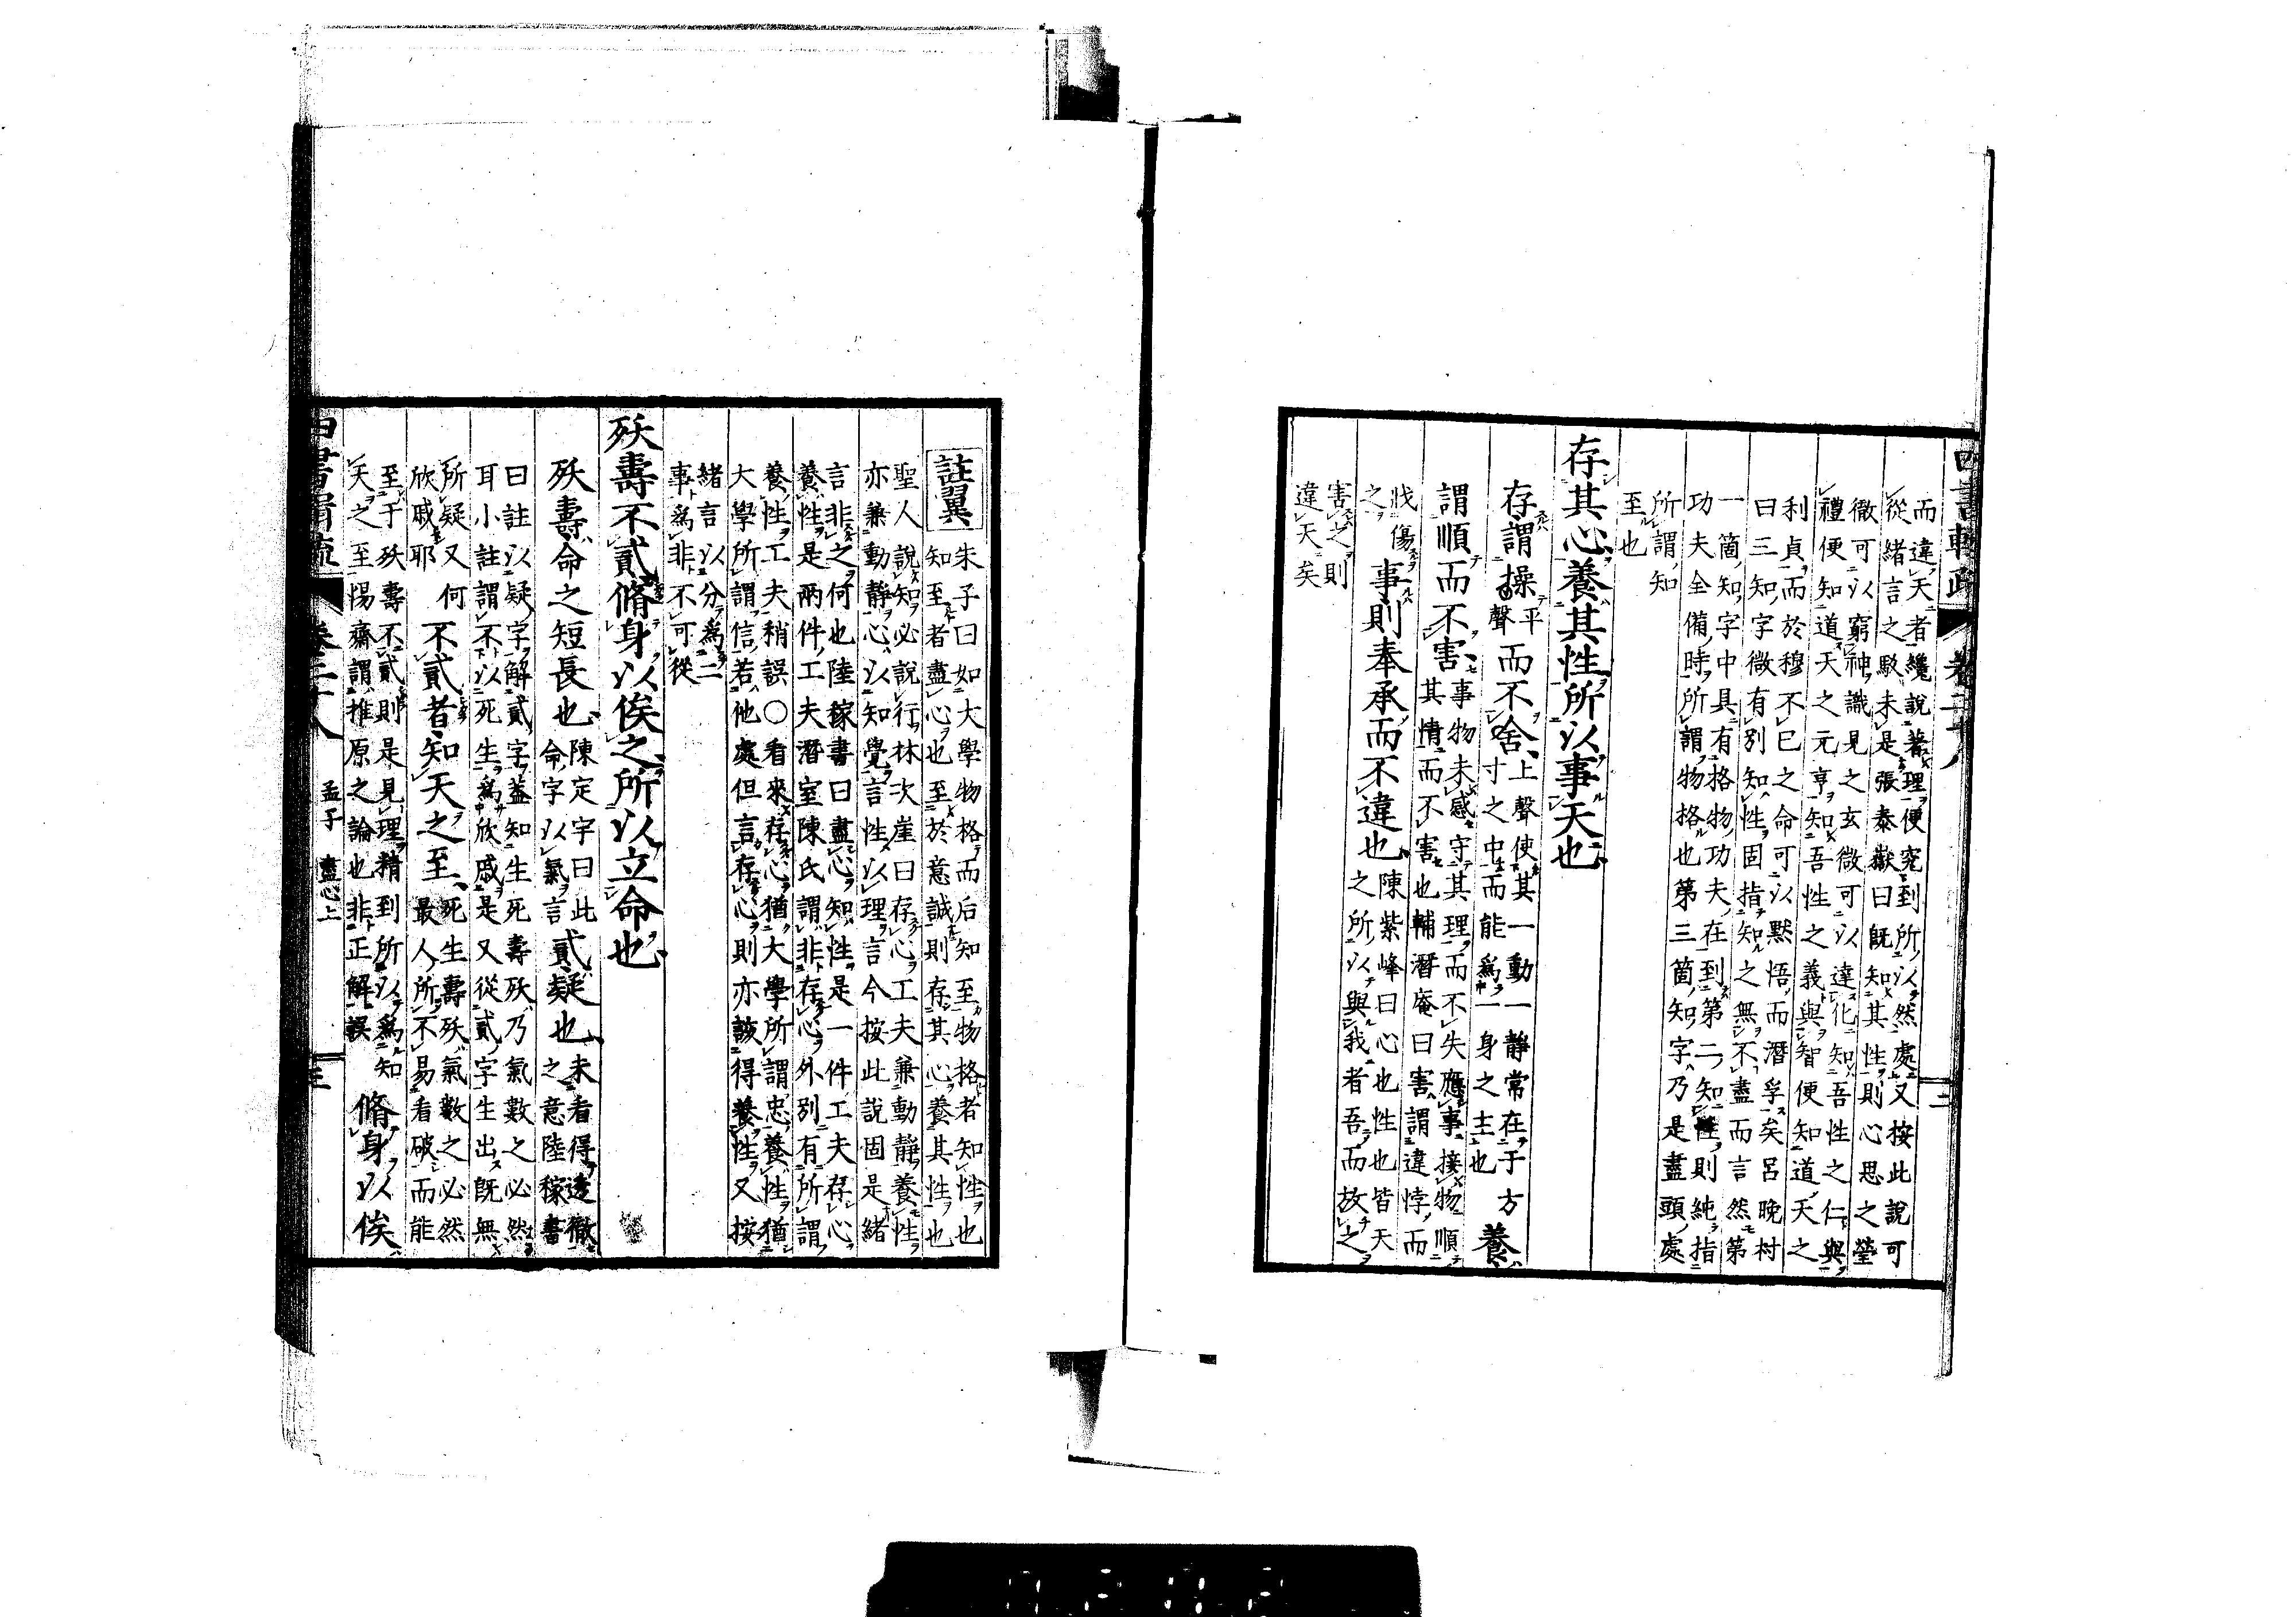 四書輯疏
卷二十八
三
而違天者纔說著理便究到所以然處又按此說可
從緒言之駁未是張泰嶽曰旣知其性則心思之瑩
徹可以窮神識見之玄微可以達化知吾性之仁與
禮便知道天之元亨知吾性之義與智便知道天之
利貞而於穆不已之命可以默悟而潛孚矣呂晚村
曰三知字微有別知性固指知之無不盡而言然第
一箇知字中具有格物功夫在到第二知性則純指
功夫全備時所謂物格也第三箇知字乃是盡頭處
所謂知
至也
存其心養其性所以事天也
存謂操平
聲而不舍上聲使其一動一靜常在于方
寸之中而能爲一身之主也養
謂順而不害事物未感守其理而不失應事接物順
其情而不害也輔潛庵曰害謂違悖而
戕傷
之事則奉承而不違也陳紫峰曰心也性也皆天
之所以與我者吾而放之
害之則
違天矣
註翼朱子曰如大學物格而后知至物格者知性也
知至者盡心也至於意誠則存其心養其性也
聖人說知必說行林次崖曰存心工夫兼動靜養性
亦兼動靜心以知覺言性以理言今按此說固是緒
言非之何也陸稼書曰盡心知性是一件工夫存心
養性是兩件工夫潛室陳氏謂非存心外別有所謂
養性工夫稍誤○看來存心猶大學所謂忠養性猶
大學所謂信若他處但言存心則亦該得養性又按
緒言以分爲二
事爲非不可從
殀壽不貳脩身以俟之所以立命也
殀壽命之短長也陳定宇曰此
命字以氣言貳疑也未看得透徹
之意陸稼書
曰註以疑字解貳字蓋知生死壽殀乃氣數之必然
耳小註謂不以死生爲欣戚是又從貳字生出旣無
所疑又何
欣戚耶不貳者知天之至死生壽殀氣數之必然
最人所不易看破而能
至于殀壽不貳則是見理精到所以爲知
天之至惕齋謂推原之論也非正解誤脩身以俟
四書輯疏
卷二十八
孟子 盡心上
三